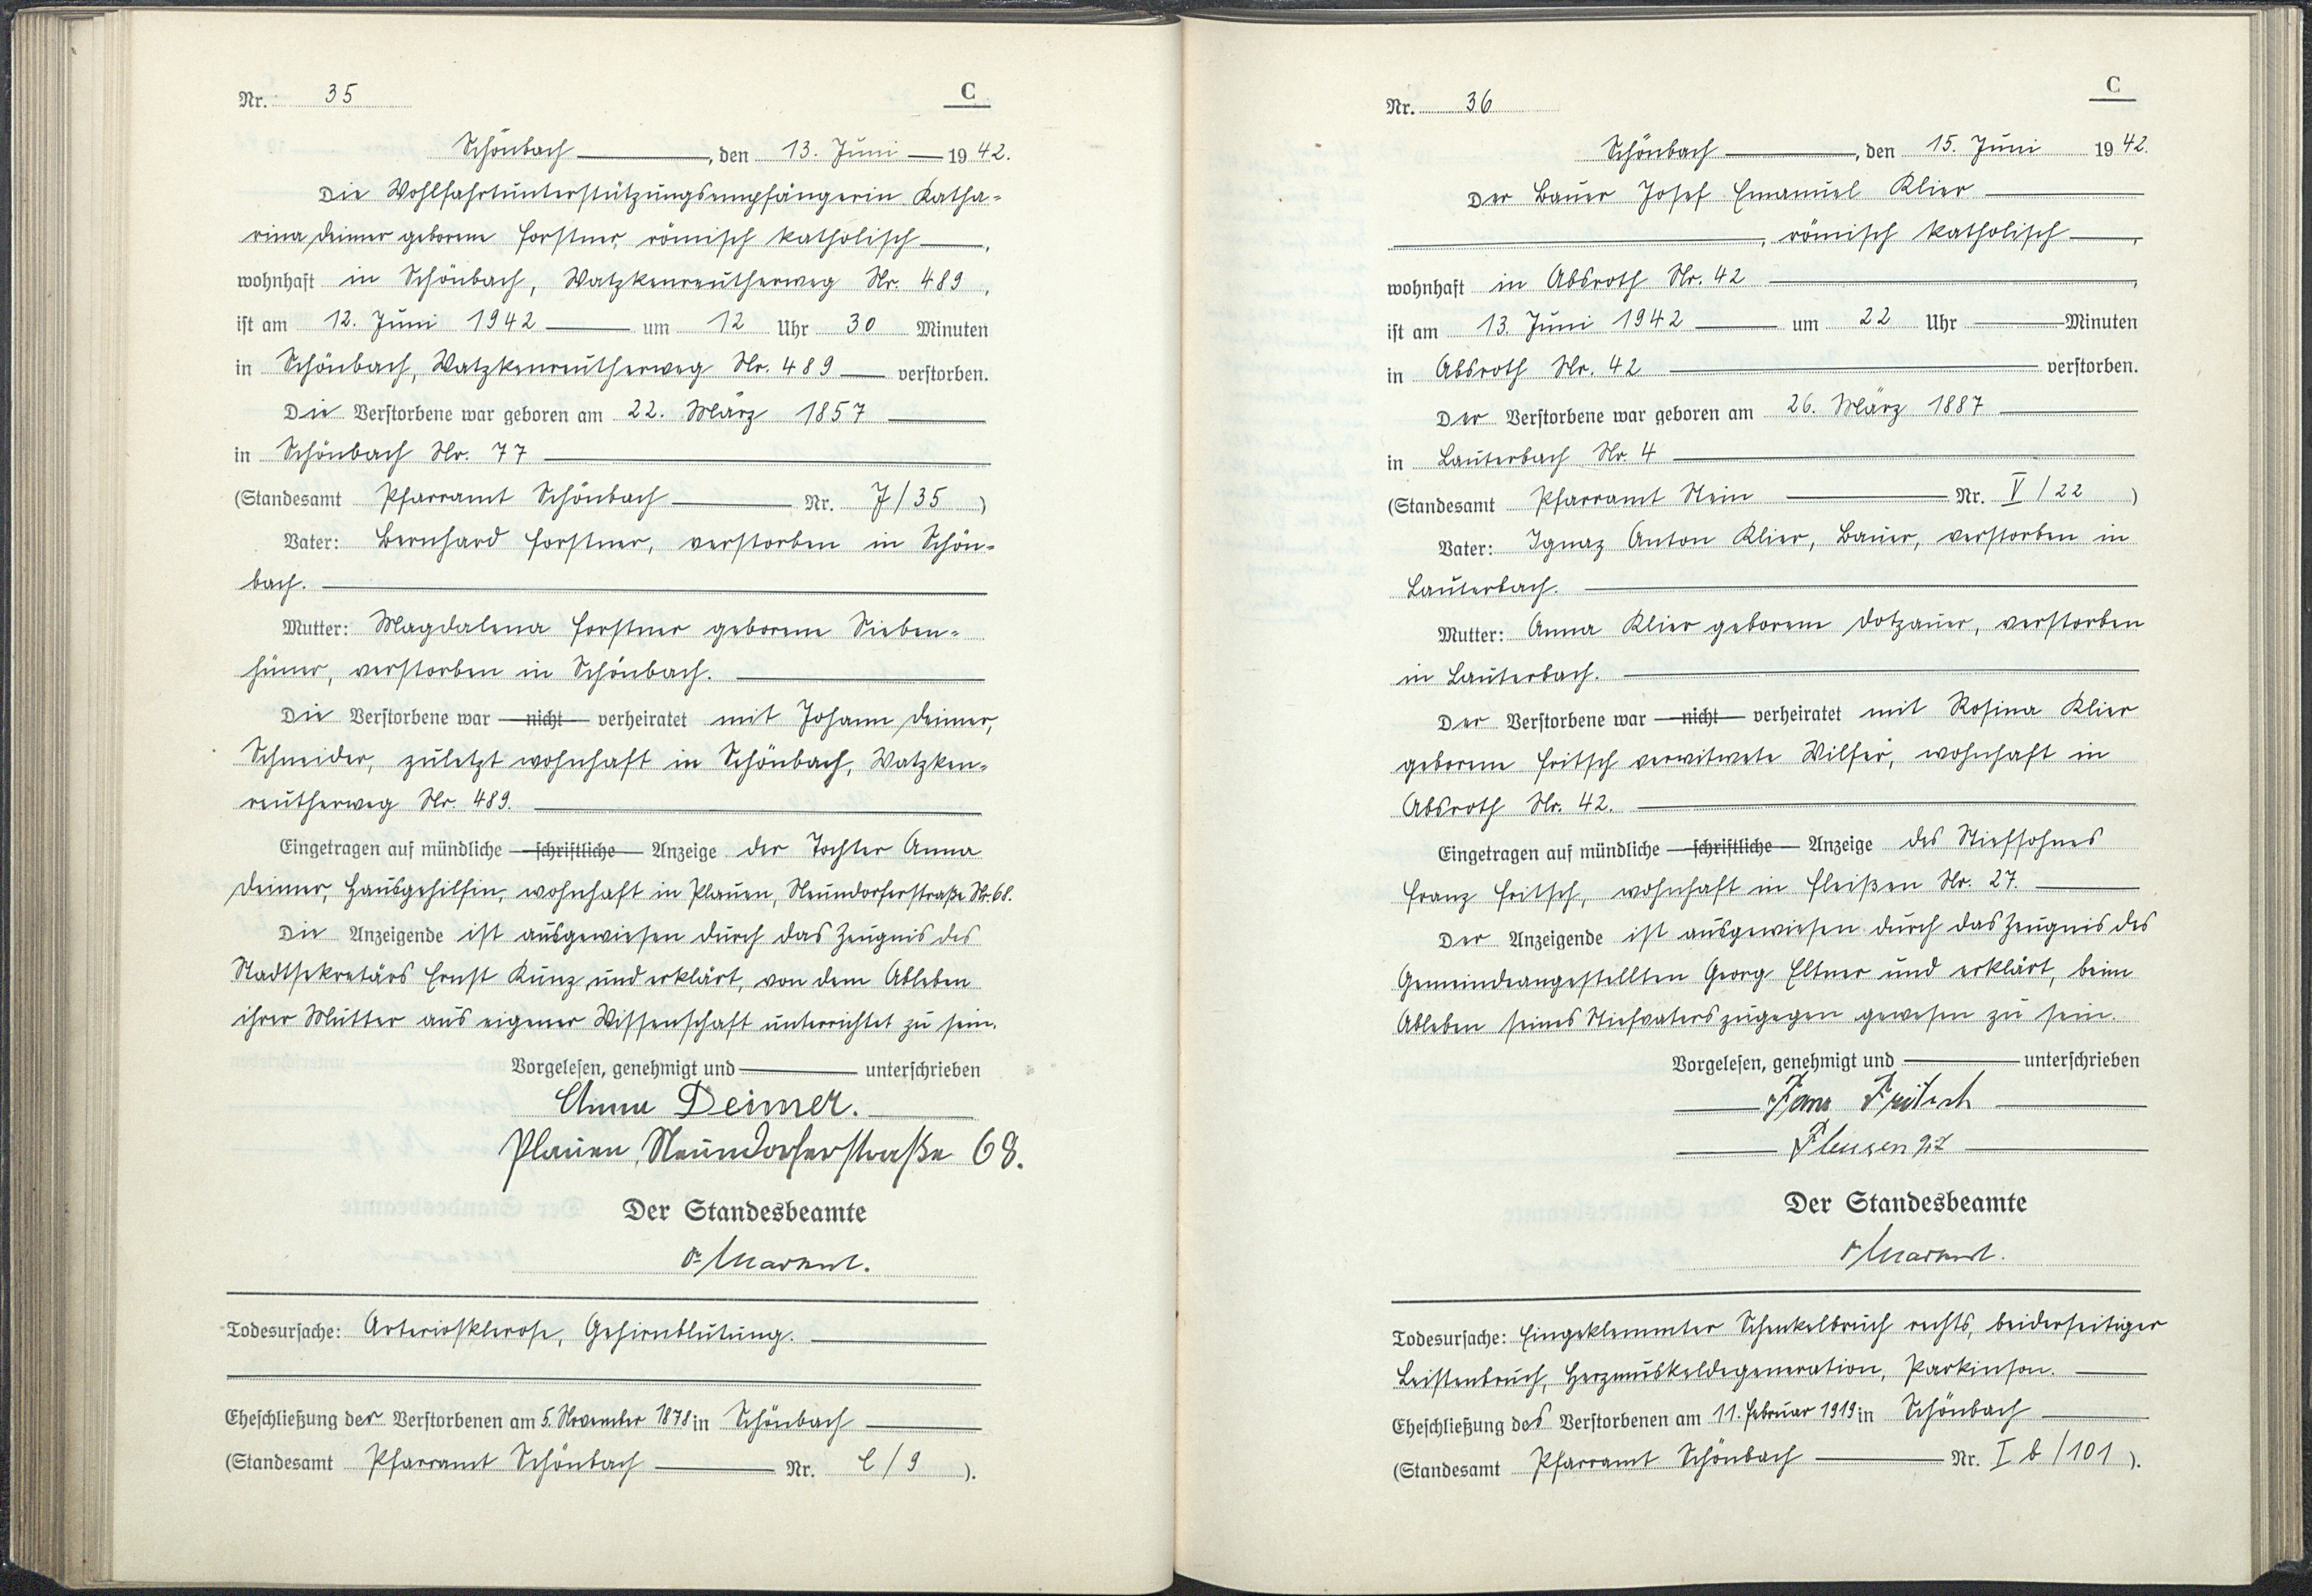 Nr. 35
C
Schönbach, den 13. Juni 1942.
Die Wohlfahrtunterstützungsempfängerin Katha-
rina Deimer geborene Forstner, römisch katholisch,
wohnhaft in Schönbach, Watzkenreutherweg Nr. 489,
ist am 12. Juni 1942 um 12 Uhr 30 Minuten
in Schönbach, Watzkenreutherweg Nr. 489 verstorben.
Die Verstorbene war geboren am 22. März 1857
in Schönbach Nr. 77
(Standesamt Pfarramt Schönbach Nr. 7/35)
Vater: Bernhard Forstner, verstorben in Schön-
bach.
Mutter: Magdalena Forstner geborene Sieben-
hüner, verstorben in Schönbach.
Die Verstorbene war nicht verheiratet mit Johann Deimer,
Schneider, zuletzt wohnhaft in Schönbach, Watzken-
reutherweg Nr. 489.
Eingetragen auf mündliche schriftliche Anzeige der Tochter Anna
Deimer, Hausgehilfin, wohnhaft in Plauen, Neundorferstraße Nr. 68.
Die Anzeigende ist ausgewiesen durch das Zeugnis des
Stadtsekretärs Ernst Kunz und erklärt, von dem Ableben
ihrer Mutter aus eigener Wissenschaft unterrichtet zu sein.
Vorgelesen, genehmigt und unterschrieben
Anna Deimer.
Plauen, Neundorferstraße 68.
Der Standesbeamte
Todesursache: Arteriosklerose, Gehirnblutung.
Eheschließung der Verstorbenen am 5. November 1878 in Schönbach
(Standesamt Pfarramt Schönbach Nr. C/9).
Nr. 36
C
Schönbach, den 15. Juni 1942.
Der Bauer Josef Emanuel Klier
, römisch katholisch,
wohnhaft in Absroth Nr. 42,
ist am 13. Juni 1942 um 22 Uhr Minuten
in Absroth Nr. 42 verstorben.
Der Verstorbene war geboren am 26. März 1887
in Lauterbach Nr. 4
(Standesamt Pfarramt Stein Nr. V/22)
Vater: Ignaz Anton Klier, Bauer, verstorben in
Lauterbach.
Mutter: Anna Klier geborene Dotzauer, verstorben
in Lauterbach.
Der Verstorbene war nicht verheiratet mit Rosina Klier
geborene Fritsch verwitwete Wilfer, wohnhaft in
Absroth Nr. 42.
Eingetragen auf mündliche schriftliche Anzeige des Stiefsohnes
Franz Fritsch, wohnhaft in Fleißen Nr. 27.
Der Anzeigende ist ausgewiesen durch das Zeugnis des
Gemeindeangestellten Georg Eltner und erklärt, beim
Ableben seines Stiefvaters zugegen gewesen zu sein.
Vorgelesen, genehmigt und unterschrieben
Franz Fritsch
27
Der Standesbeamte
Todesursache: Eingeklemmter Schenkelbruch rechts, beiderseitiger
Leistenbruch, Herzmuskeldegeneration, Parkinson.
Eheschließung des Verstorbenen am 11. Februar 1919 in Schönbach
(Standesamt Pfarramt Schönbach Nr. I b/101).